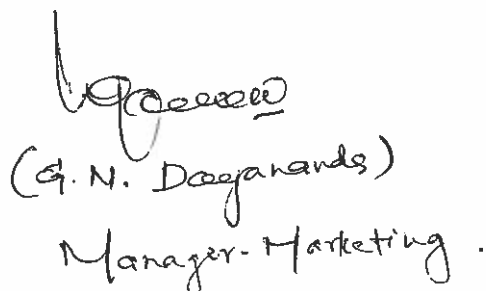 (G.N. Dayananda)
Manager-Marketing.